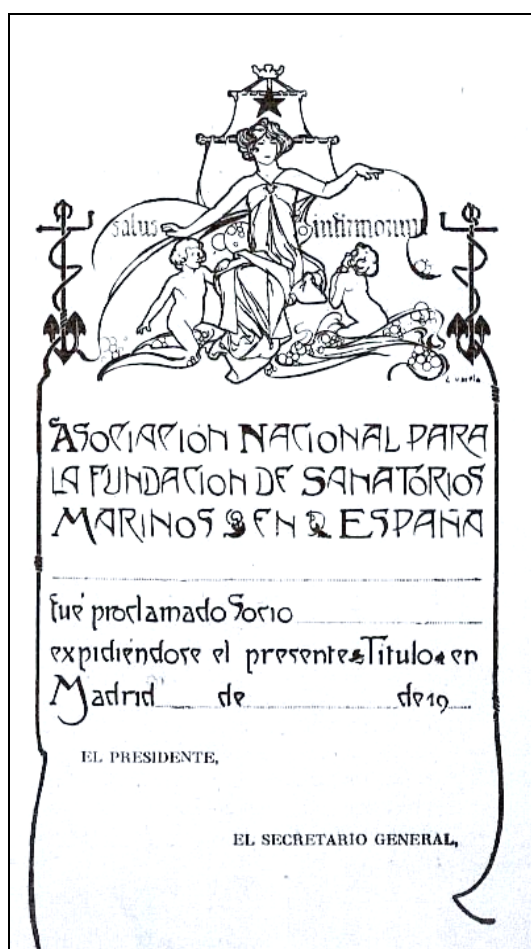 salus infirmorum
L Varela
ASOCIACIÓN NACIONAL PARA
LA FUNDACION DE SANATORIOS
MARINOS EN ESPAÑA
fué proclamado Socio
expidiéndose el presente Titulo en
Madrid de de 19
EL PRESIDENTE,
EL SECRETARIO GENERAL,